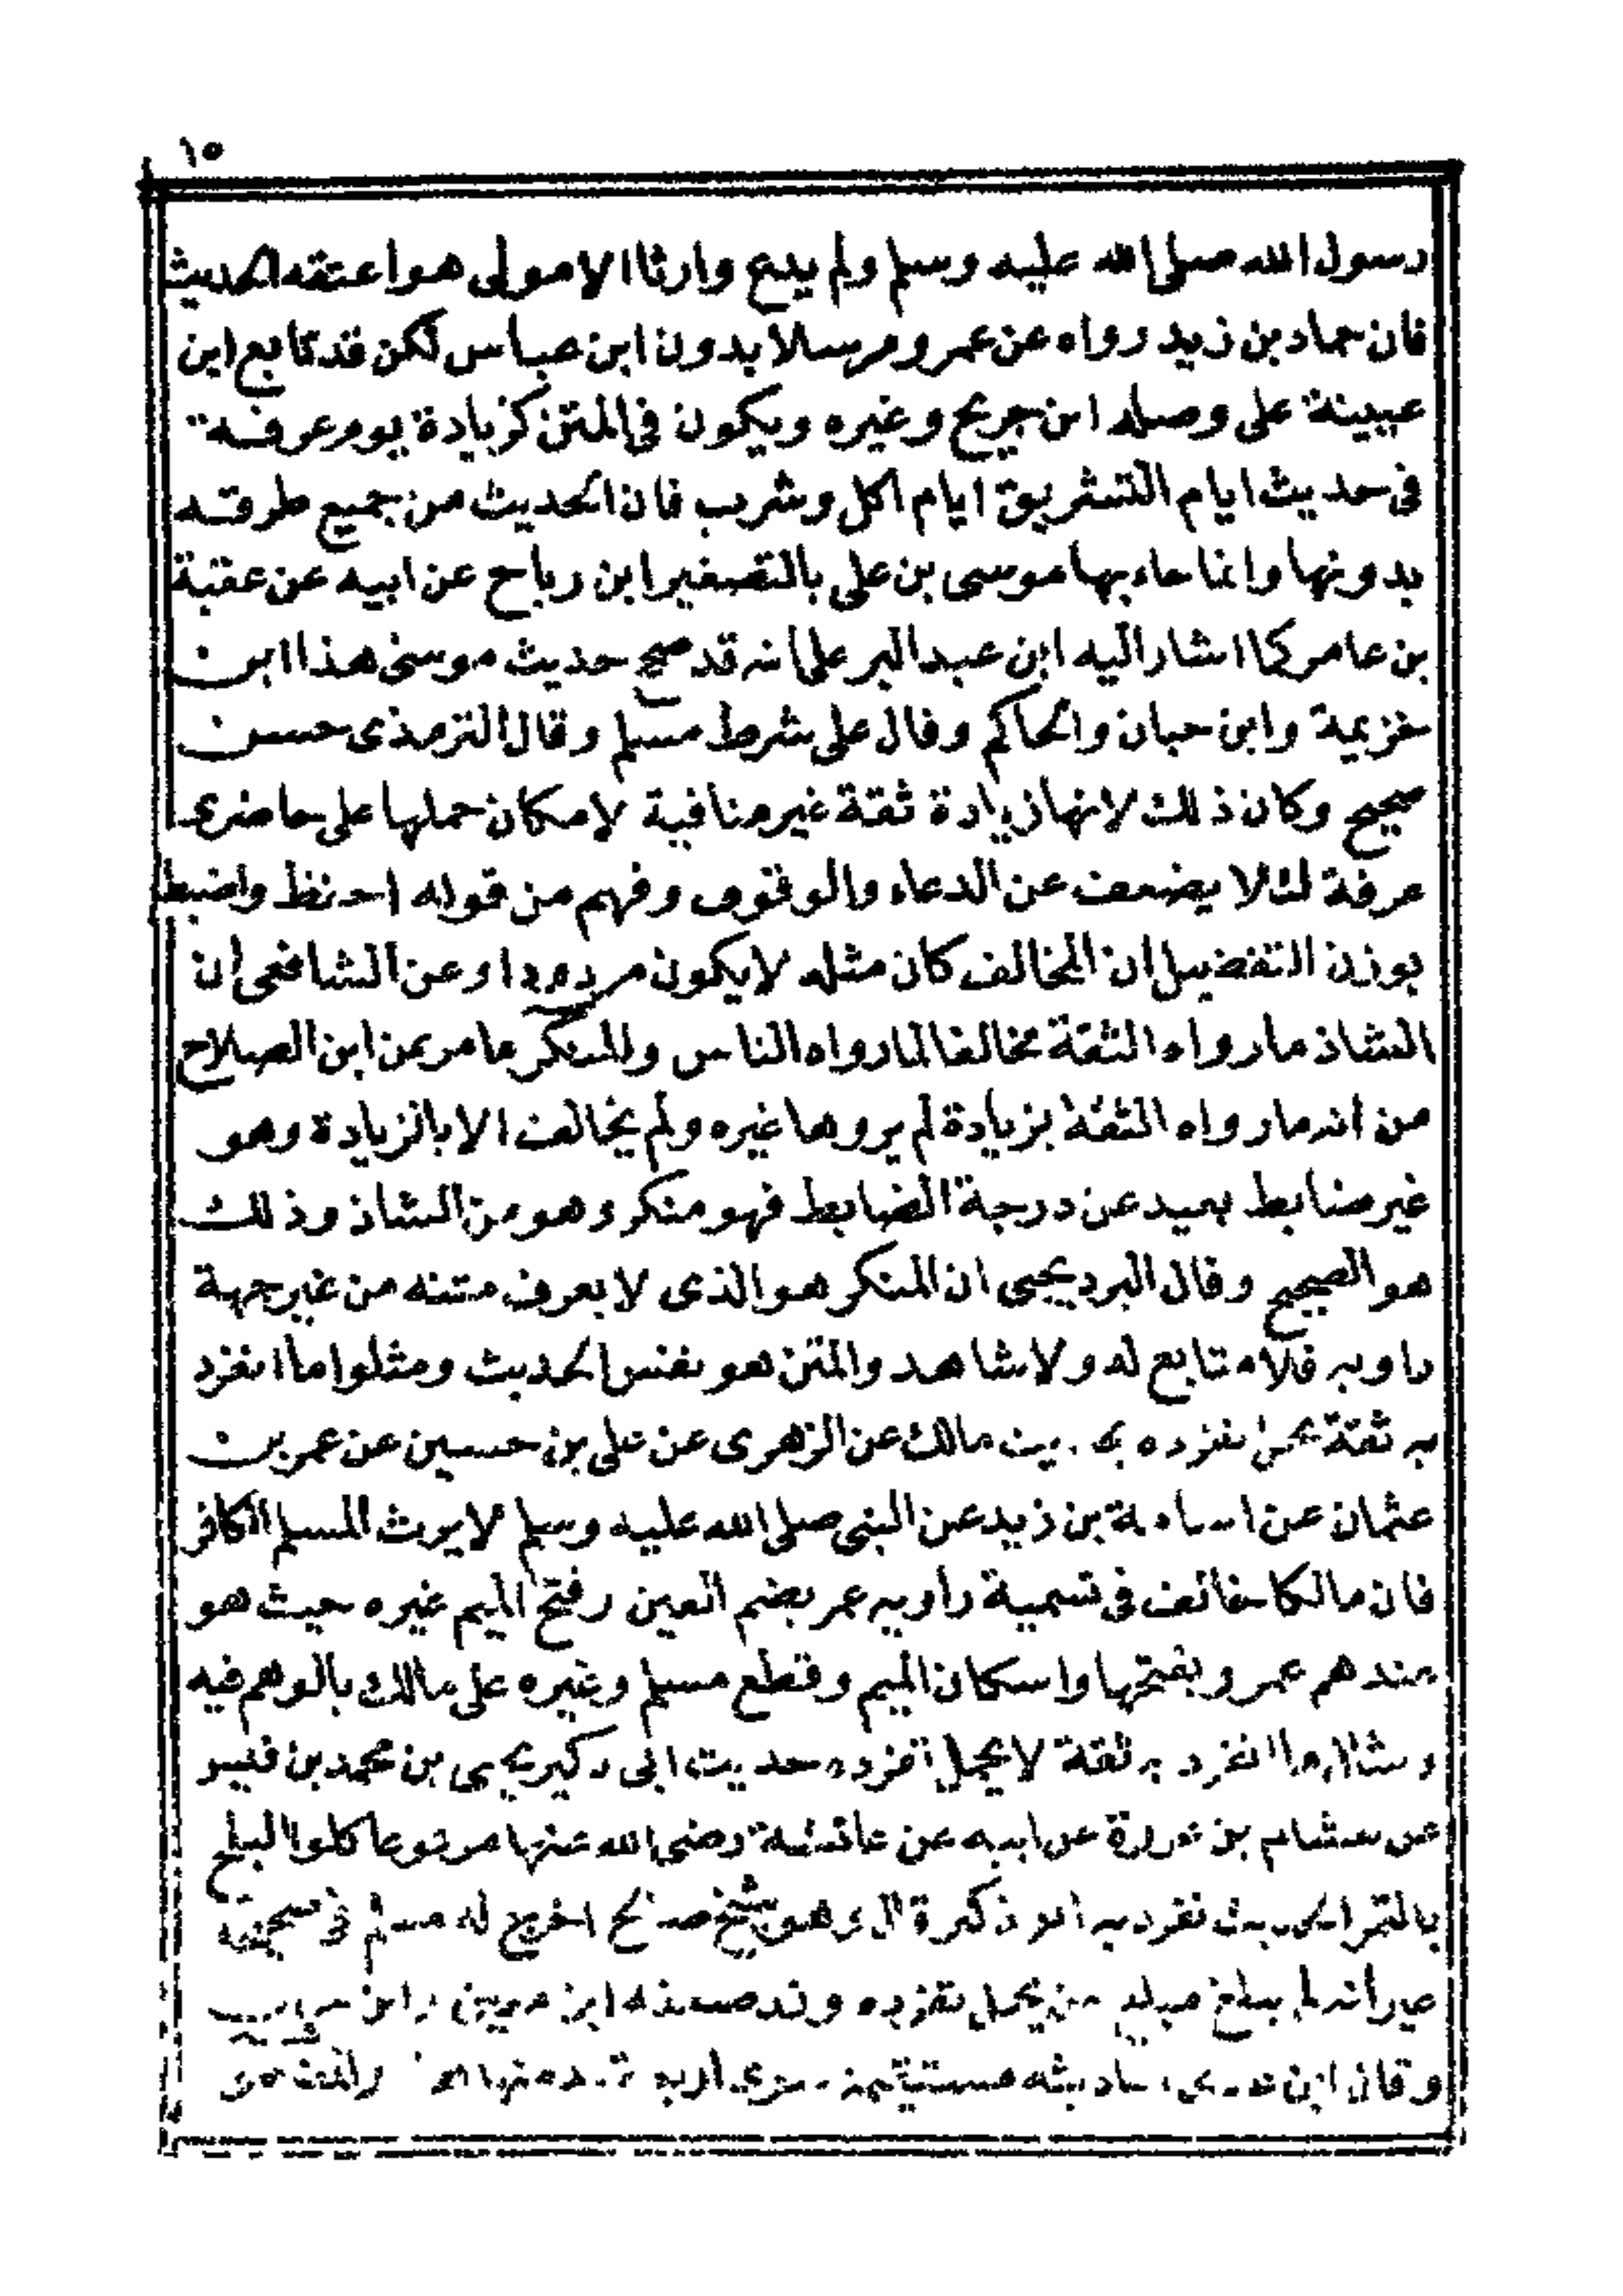 ١٥
رسول الله صلى الله عليه وسلم ولم يدع وارثا الا مولى هو اعتقه الحديث
فان حماد بن زيد رواه عن عمرو مرسلا بدون ابن عباس لكن قد تابع ابن
عيينة على وصله ابن جريج وغيره ويكون فى المتن كزيادة يوم عرفة
فى حديث ايام التشريق ايام اكل وشرب فان الحديث من جميع طرقه
بدونها وانما جاء بها موسى بن على بالتصغير ابن رباح عن ابيه عن عقبة
بن عامر كما اشار اليه ابن عبد البر على انه قد صحح حديث موسى هذا ابن
خزيمة وابن حبان والحاكم وقال على شرط مسلم وقال الترمذى حسن
صحيح وكان ذلك لانها زيادة ثقة غير منافية لامكان حملها على حاضرى
عرفة لئلا يضعف عن الدعاء والوقوف وفهم من قوله احفظ واضبط
بوزن التفضيل ان المخالف كان مثله لا يكون مردودا وعن الشافعى ان
الشاذ ما رواه الثقة مخالفا لما رواه الناس والمنكر ما مر عن ابن الصلاح
من انه ما رواه الثقة بزيادة لم يروها غيره ولم يخالف الا بالزيادة وهو
غير ضابط بعيد عن درجة الضابط فهو منكر وهو من الشاذ وذلك
هو الصحيح وقال البرديجى ان المنكر هو الذى لا يعرف متنه من غير جهة
راويه فلا متابع له ولا شاهد والمتن هو نفس الحديث ومثلوا ما انفرد
به ثقة يحمل تفرده مالك عن الزهرى عن على بن حسين عن عمر بن
عثمان عن اسامة بن زيد عن النبى صلى الله عليه وسلم لا يرث المسلم الكافر
فان مالكا خالف فى تسمية راويه عمر بضم العين وفتح الميم غيره حيث هو
عندهم عمرو بفتحها واسكان الميم وقطع مسلم وغيره على مالك بالوهم فيه
ومثال ما انفرد به ثقة لا يحمل تفرده حديث ابى زكير يحيى بن محمد بن قيس
عن هشام بن عروة عن ابيه عن عائشة رضى الله عنها مرفوعا كلوا البلح
بالتمر الحديث تفرد به ابو زكير وهو شيخ صالح اخرج له مسلم فى صحيحه
غير انه لم يبلغ مبلغ من يحمل تفرده وقد ضعفه ابن معين وابن حبان
وقال ابن عدى احاديثه مستقيمة سوى اربعة